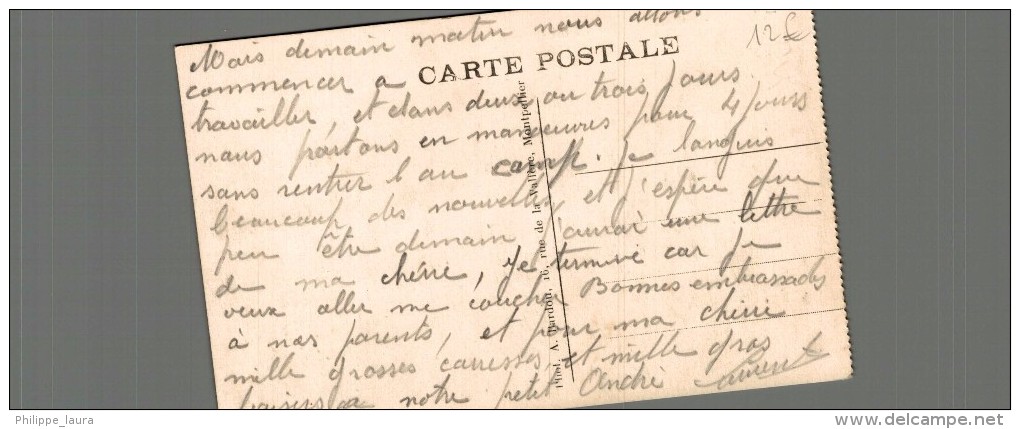 Mais demain matin nous allons
12 €
commencer a
CARTE POSTALE
travailler, et dans deux ou trois jours
nous partons en manoeuvres pour 4 jours
sans rentrer l au camp. Je languis
beaucoup des nouvelles, et j'espère que
peu être demain j'aurai une lettre
de ma chérie, je termine car je
veux aller me coucher Bonnes embrassades
à nos parents, et pour ma chérie
mille grosses caresses et mille gros
baisers a notre petit André Laurent
Phot. A. Bardou, 16, rue de la Valfère, Montpellier
Philippe_laura
www.delcampe.net